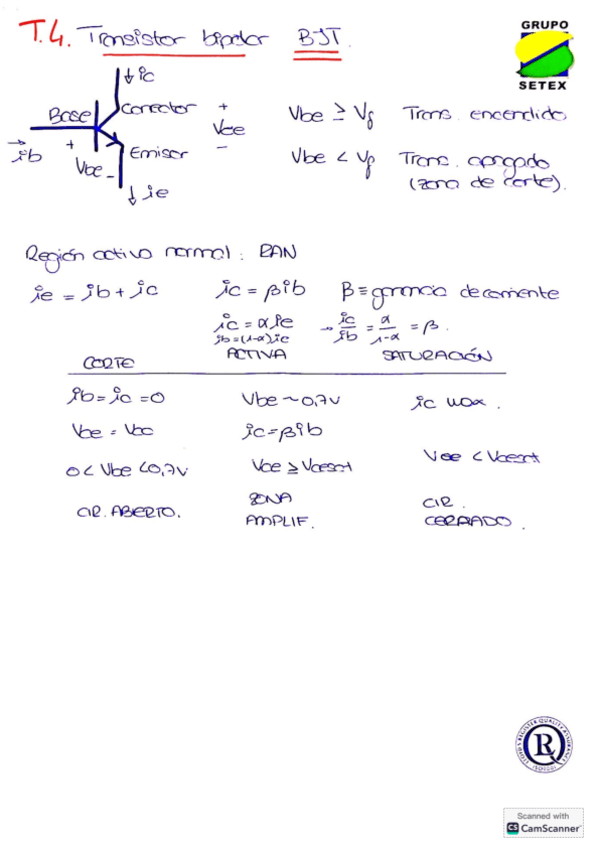 T.4. Transistor bipolar BJT.
GRUPO
SETEX
↓ ic
Base
Conector
+
Vce
-
ib
+
Vbe -
Emisor
↓ ie
Vbe ≥ Vf Trans. encendido
Vbe < Vf Tranc. apagado
(zona de corte).
Región activa normal: RAN
ie = ib + ic ic = βib β ≡ ganancia de corriente
ic = αie → ic/ib = α/1-α = β.
ib = (1-α)ic
CORTE ACTIVA SATURACIÓN
ib = ic = 0 Vbe ~ 0,7V ic max.
Vce = Vcc ic = βib
0 < Vbe < 0,7V Vce ≥ Vcesat Vce < Vcesat
CIR. ABERTO. ZONA AMPLIF. CIR. CERRADO.
LLOYD'S REGISTER QUALITY ASSURANCE
ISO9001
Scanned with
CS CamScanner